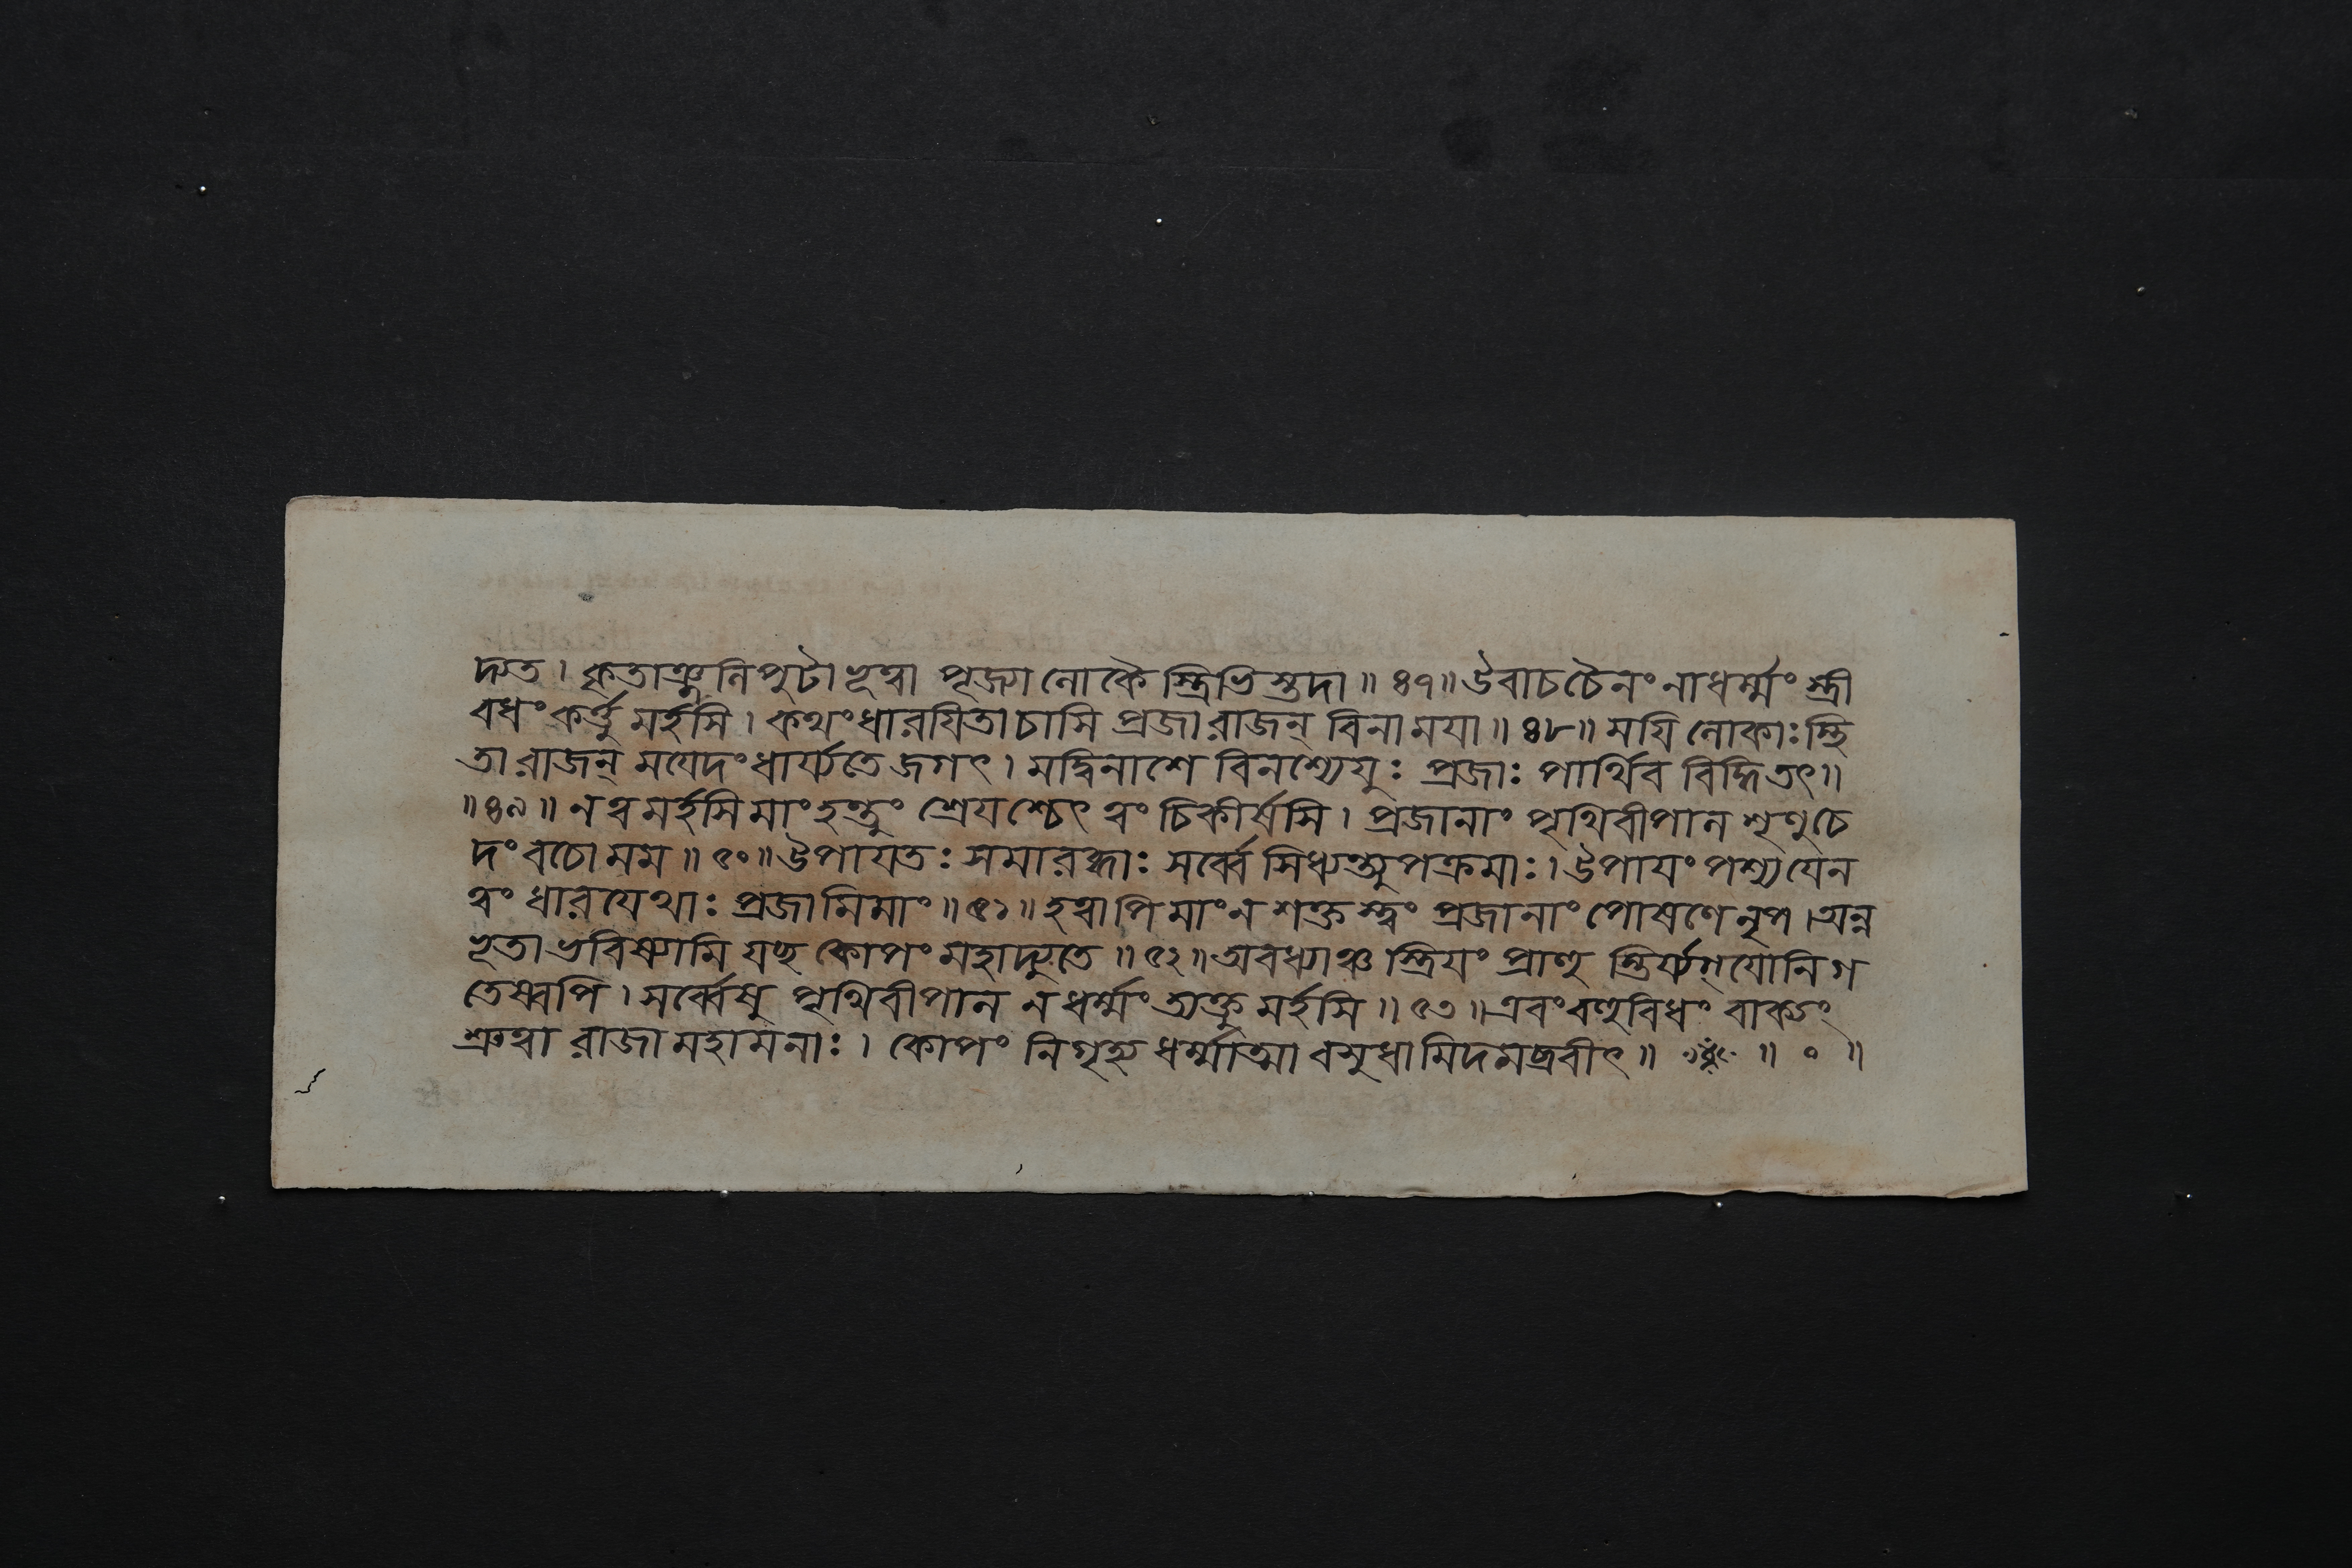 দ্যত। কৃতাঞ্জলিপুটা ভূত্বা পূজ্যা লোকৈস্ত্রিভিস্তদা॥৪৭॥ উবাচচৈনং নাধর্ম্মং স্ত্রী
বধং কর্ত্তুমর্হসি। কথং ধারযিতা চাসি প্রজা রাজন্ বিনা মযা॥৪৮॥ মযি লোকাঃ স্থি
তা রাজন্ মযেদং ধার্য্যতে জগৎ। মদ্বিনাশে বিনশ্যেযুঃ প্রজাঃ পার্থিব বিদ্ধি তৎ॥
॥৪৯॥ ন ত্বমর্হসি মাং হন্তুং শ্রেযশ্চেৎ ত্বং চিকীর্ষসি। প্রজানাং পৃথিবীপাল শৃণু চে
দং বচো মম॥৫০॥ উপাযতঃ সমারব্ধাঃ সর্ব্বে সিধ্যন্ত্যুপক্রমাঃ। উপাযং পশ্য যেন
ত্বং ধারযেথাঃ প্রজামিমাং॥৫১॥ হত্বাপি মাং ন শক্তস্ত্বং প্রজানাং পোষণে নৃপ। অন্ন
ভূতা ভবিষ্যামি যচ্ছ কোপং মহাদ্যুতে॥৫২॥ অবধ্যাঞ্চ স্ত্রিযং প্রাহু স্তির্য্যগ্যোনিগ
তেষ্বপি। সর্ব্বেষু পৃথিবীপাল ন ধর্ম্মং ত্যক্তুমর্হসি॥৫৩॥ এবং বহুবিধং বাক্যং
শ্রুত্বা রাজা মহামনাঃ। কোপং নিগৃহ্য ধর্ম্মাত্মা বসুধামিদমব্রবীৎ॥ ॥০॥